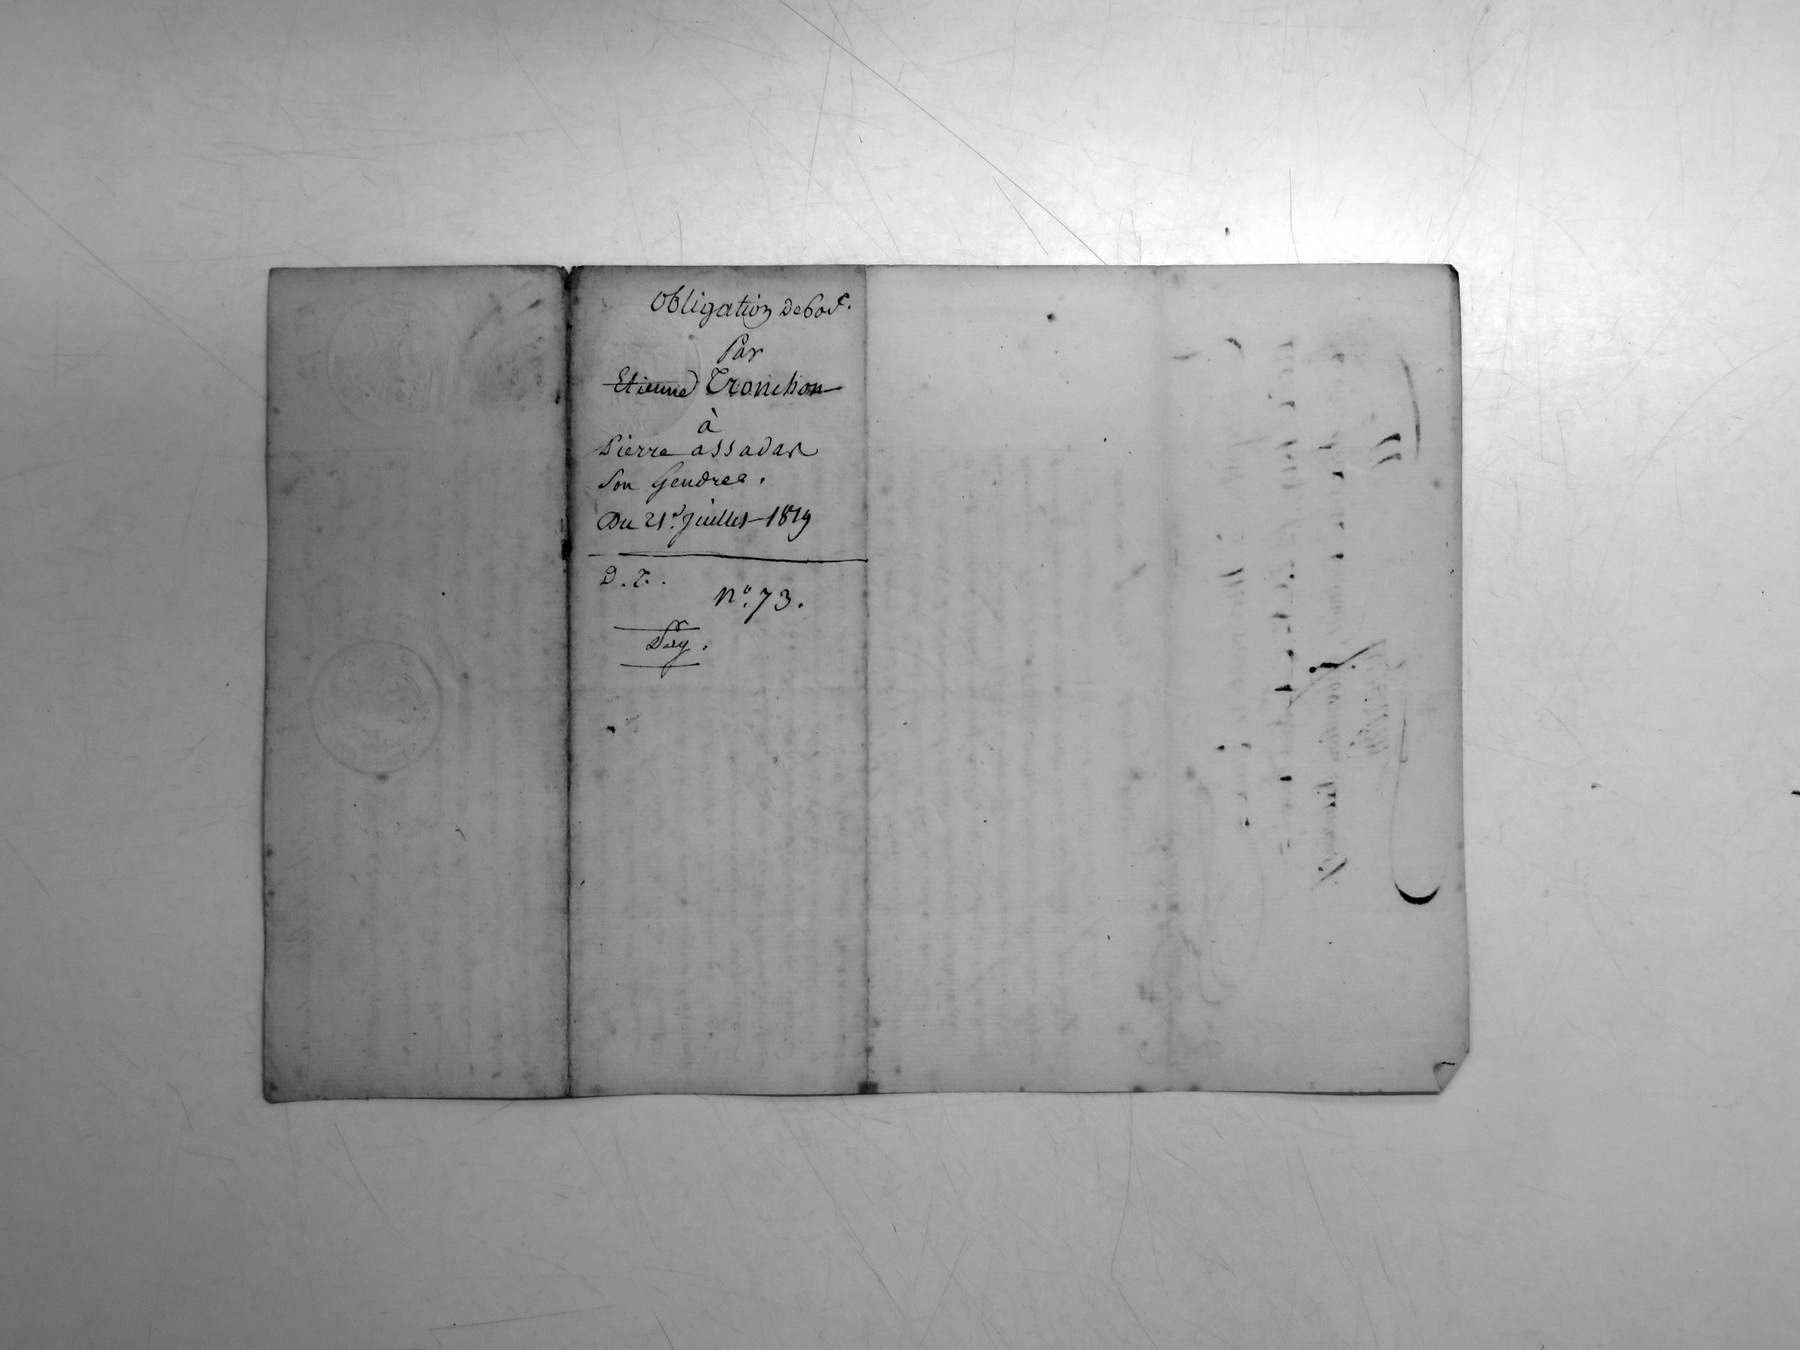 Obligation de 60 f.
Par
Etienne Tronchon
à
Pierre assadas
Son Gendre.
Du 21 Juillet 1819
D. T.
N° 73.